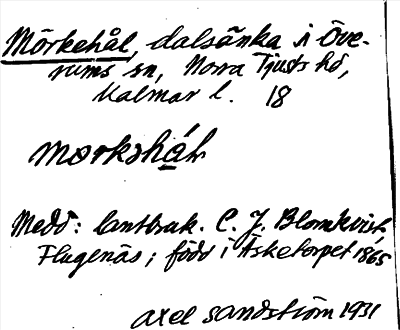 Mörkehål, dalsänka i Öve-
rums sn, Norra Tjusts hd,
Kalmar l. 18
morkshál
Medd: lantbruk. C. J. Blomkvist,
Flugenäs; född i Äsketorpet 1865
Axel Sandström 1931